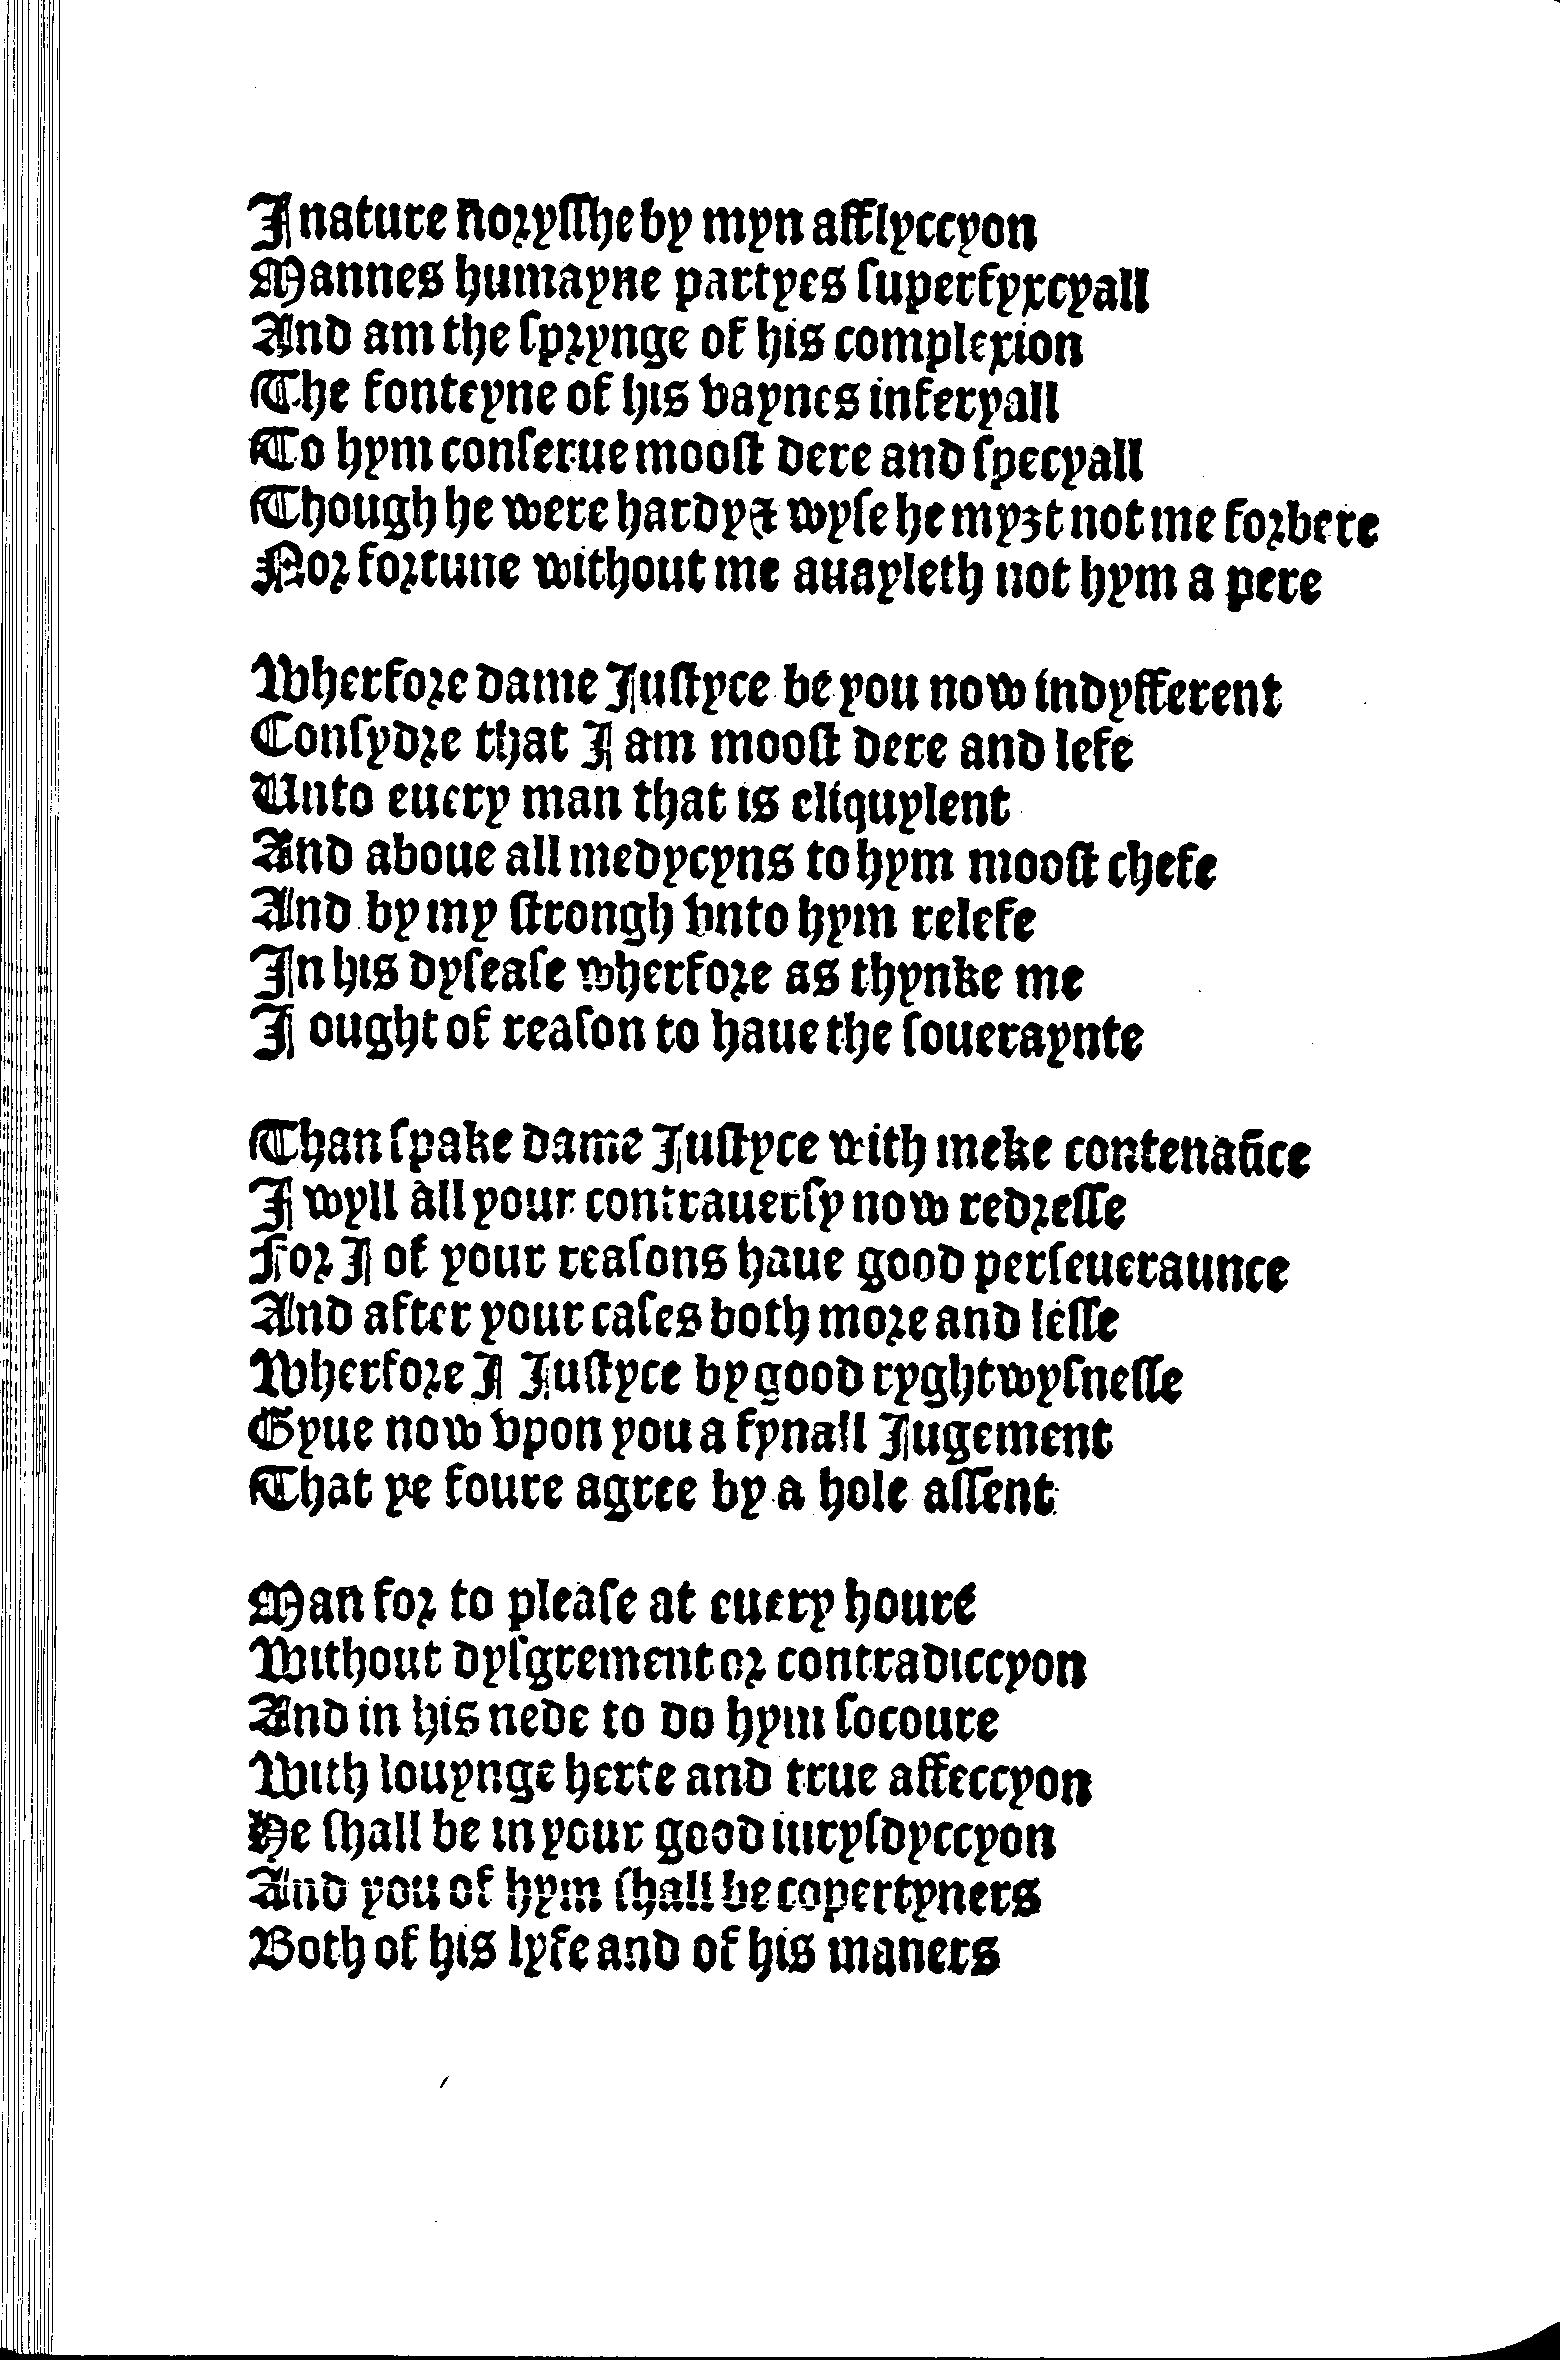 I nature noryſſhe by myn afflyccyon
Mannes humayne partyes ſuperfyxcyall
And am the ſprynge of his complexion
The fonteyne of his vaynes inferyall
To hym conſerue mooſt dere and ſpecyall
Though he were hardy & wyſe he myȝt not me forbere
Nor fortune without me auayleth not hym a pere

Wherfore dame Juſtyce be you now indyfferent
Conſydre that I am mooſt dere and lefe
Unto euery man that is eliquylent
And aboue all medycyns to hym mooſt chefe
And by my ſtrongh vnto hym relefe
In his dyſeaſe wherfore as thynke me
I ought of reaſon to haue the ſoueraynte

Than ſpake dame Juſtyce with meke contenaūce
I wyll all your contrauerſy now redreſſe
For I of your reaſons haue good perſeueraunce
And after your caſes both more and leſſe
Wherfore I Juſtyce by good ryghtwyſneſſe
Gyue now vpon you a fynall Jugement
That ye foure agree by a hole aſſent

Man for to pleaſe at euery houre
Without dyſgrement or contradiccyon
And in his nede to do hym ſocoure
With louynge herte and true affeccyon
He ſhall be in your good iuryſdyccyon
And you of hym ſhall be copertyners
Both of his lyfe and of his maners